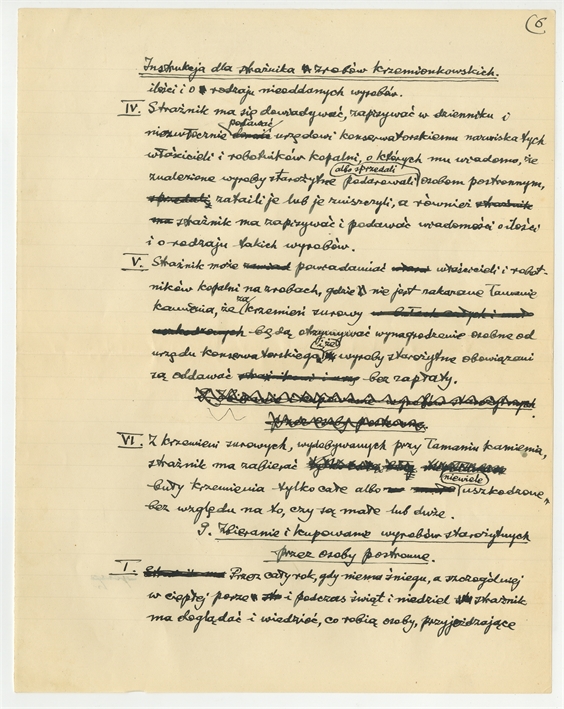 6
Instrukcja dla strażnika zrobów krzemionkowskich.
ilości i o rodzaju nieoddanych wyrobów.
IV. Strażnik ma się dowiadywać, zapisywać w dzienniku i
podawać
niezwłocznie urzędowi konserwatorskiemu nazwiska tych
właścicieli i robotników kopalni, o których mu wiadomo, że
albo sprzedali
znalezione wyroby starożytne podarowali osobom postronnym,
sprzedali, zataili je lub je zniszczyli, a również strażnik
ma strażnik ma zapisywać i podawać wiadomości o ilości
i o rodzaju takich wyrobów.
V. Strażnik może powiadamiać właścicieli i robot-
ników kopalni na zrobach, gdzie nie jest zakazane łamanie
za
kamienia, że krzemień surowy
będą otrzymywać wynagrodzenie osobne od
i że
urzędu konserwatorskiego wyroby starożytne obowiązani
są oddawać bez zapłaty.
VI. Z krzemieni surowych, wydobywanych przy łamaniu kamienia,
strażnik ma zabierać
niewiele
buły krzemienia tylko całe albo uszkodzone,
bez względu na to, czy są małe lub duże.
9. Zbieranie i kupowanie wyrobów starożytnych
przez osoby postronne.
I. Przez cały rok, gdy niema śniegu, a szczególniej
w ciepłej porze i podczas świąt i niedziel strażnik
ma doglądać i wiedzieć, co robią osoby, przyjeżdzające